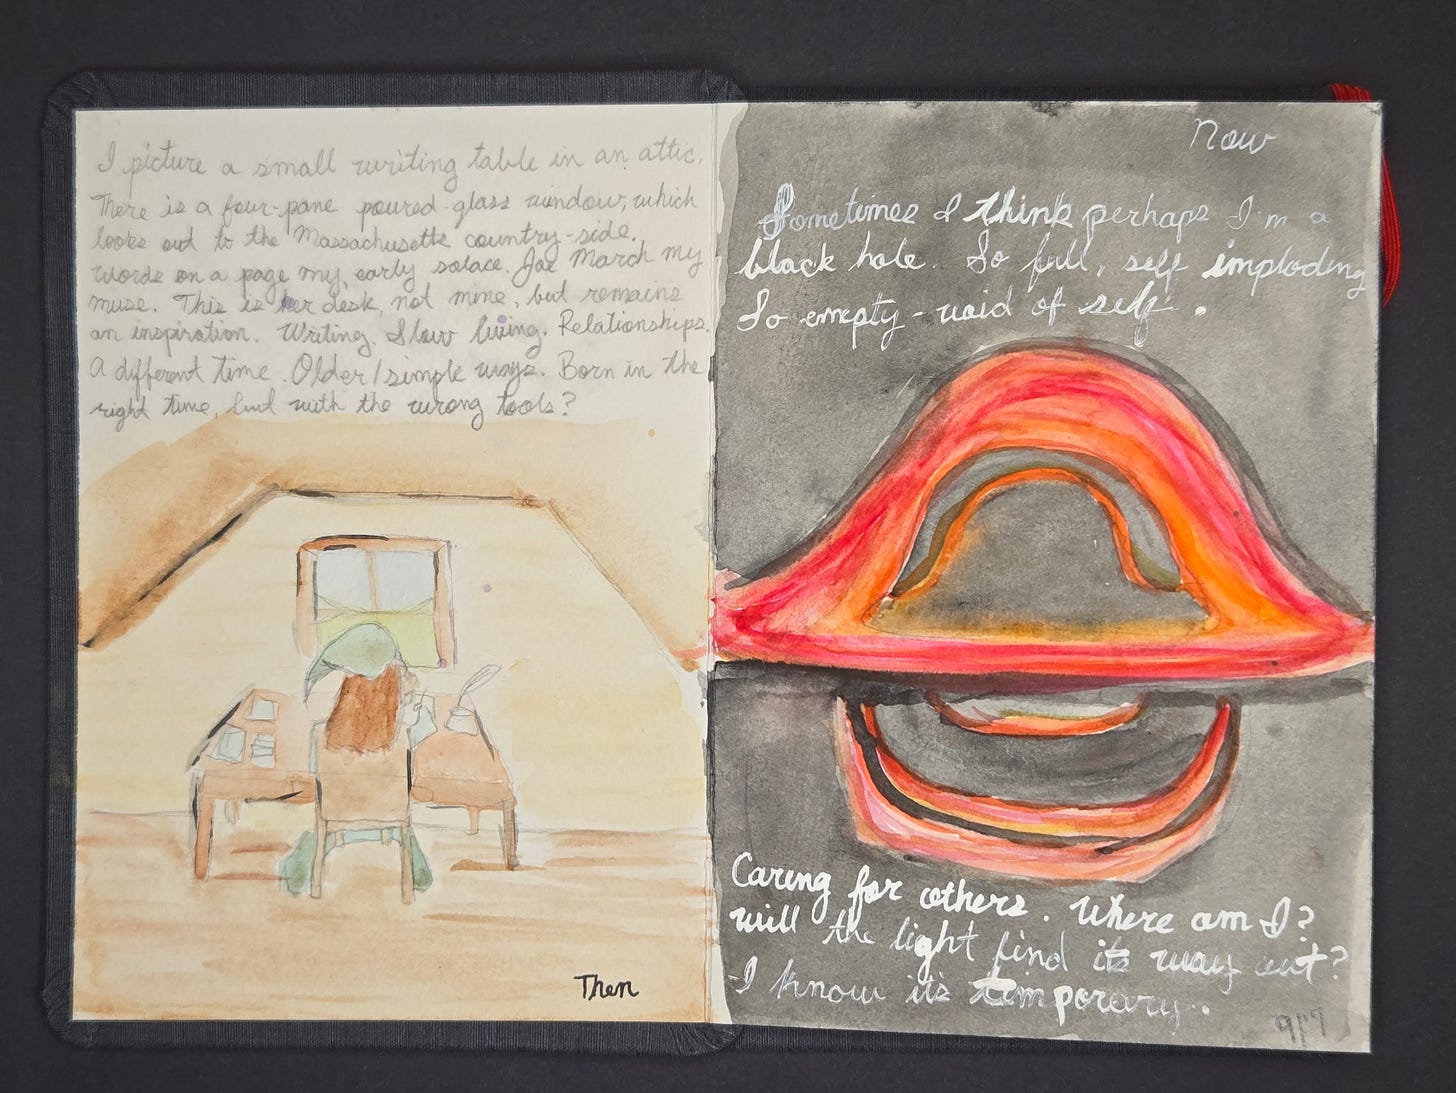 I picture a small writing table in an attic.
There is a four-pane poured-glass window, which
looks out to the Massachusetts country-side.
Words on a page my early solace, Joe March my
muse. This is her desk, not mine, but remains
an inspiration. Writing. Slow living. Relationships.
A different time. Older/simple ways. Born in the
right time, but with the wrong tools?
Then
Now
Sometimes I think perhaps I'm a
black hole. So full, self imploding
So empty - void of self.
Caring for others. Where am I?
Will the light find its way out?
I know it's temporary.
9/17